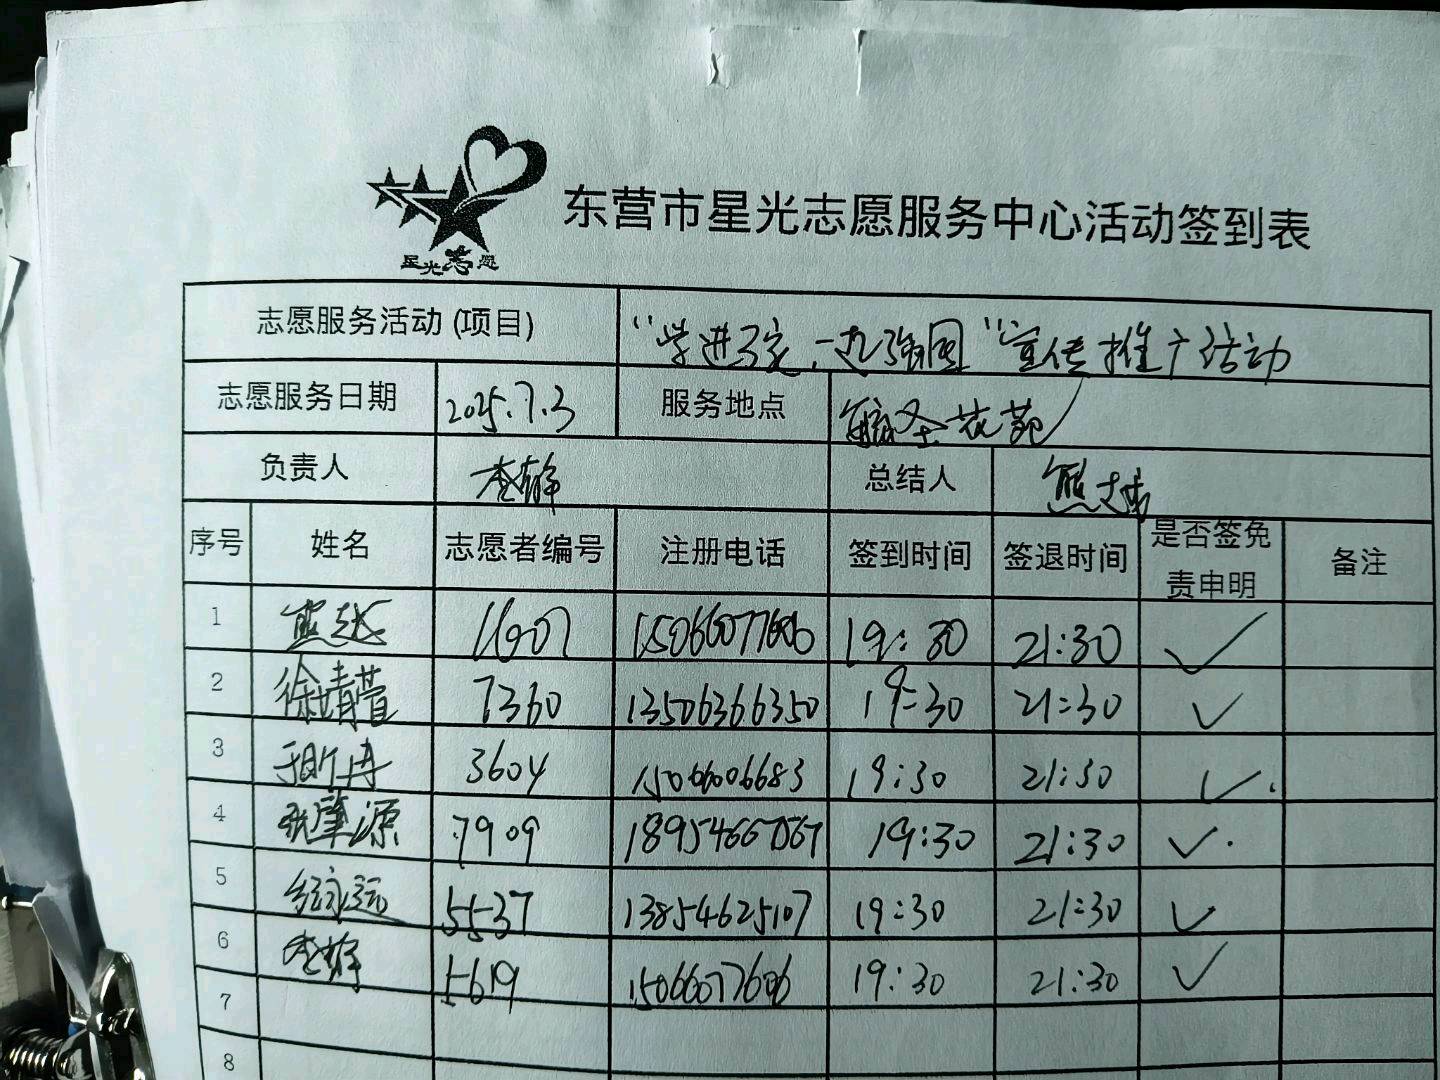 星光志愿
东营市星光志愿服务中心活动签到表
志愿服务活动 (项目) “学进万家,一起强国”宣传推广活动
志愿服务日期 2025.7.3 服务地点 花苑
负责人 李静 总结人 熊越
序号 姓名 志愿者编号 注册电话 签到时间 签退时间 是否签免责申明 备注
1 熊越 11907 15066077606 19:30 21:30 ✓
2 徐靖萱 7360 13506366350 19:30 21:30 ✓
3 3604 15066006683 19:30 21:30 ✓
4 张肇源 7909 19:30 21:30 ✓
5 永远 5537 13854625107 19:30 21:30 ✓
6 李静 5619 15066077606 19:30 21:30 ✓
7
8